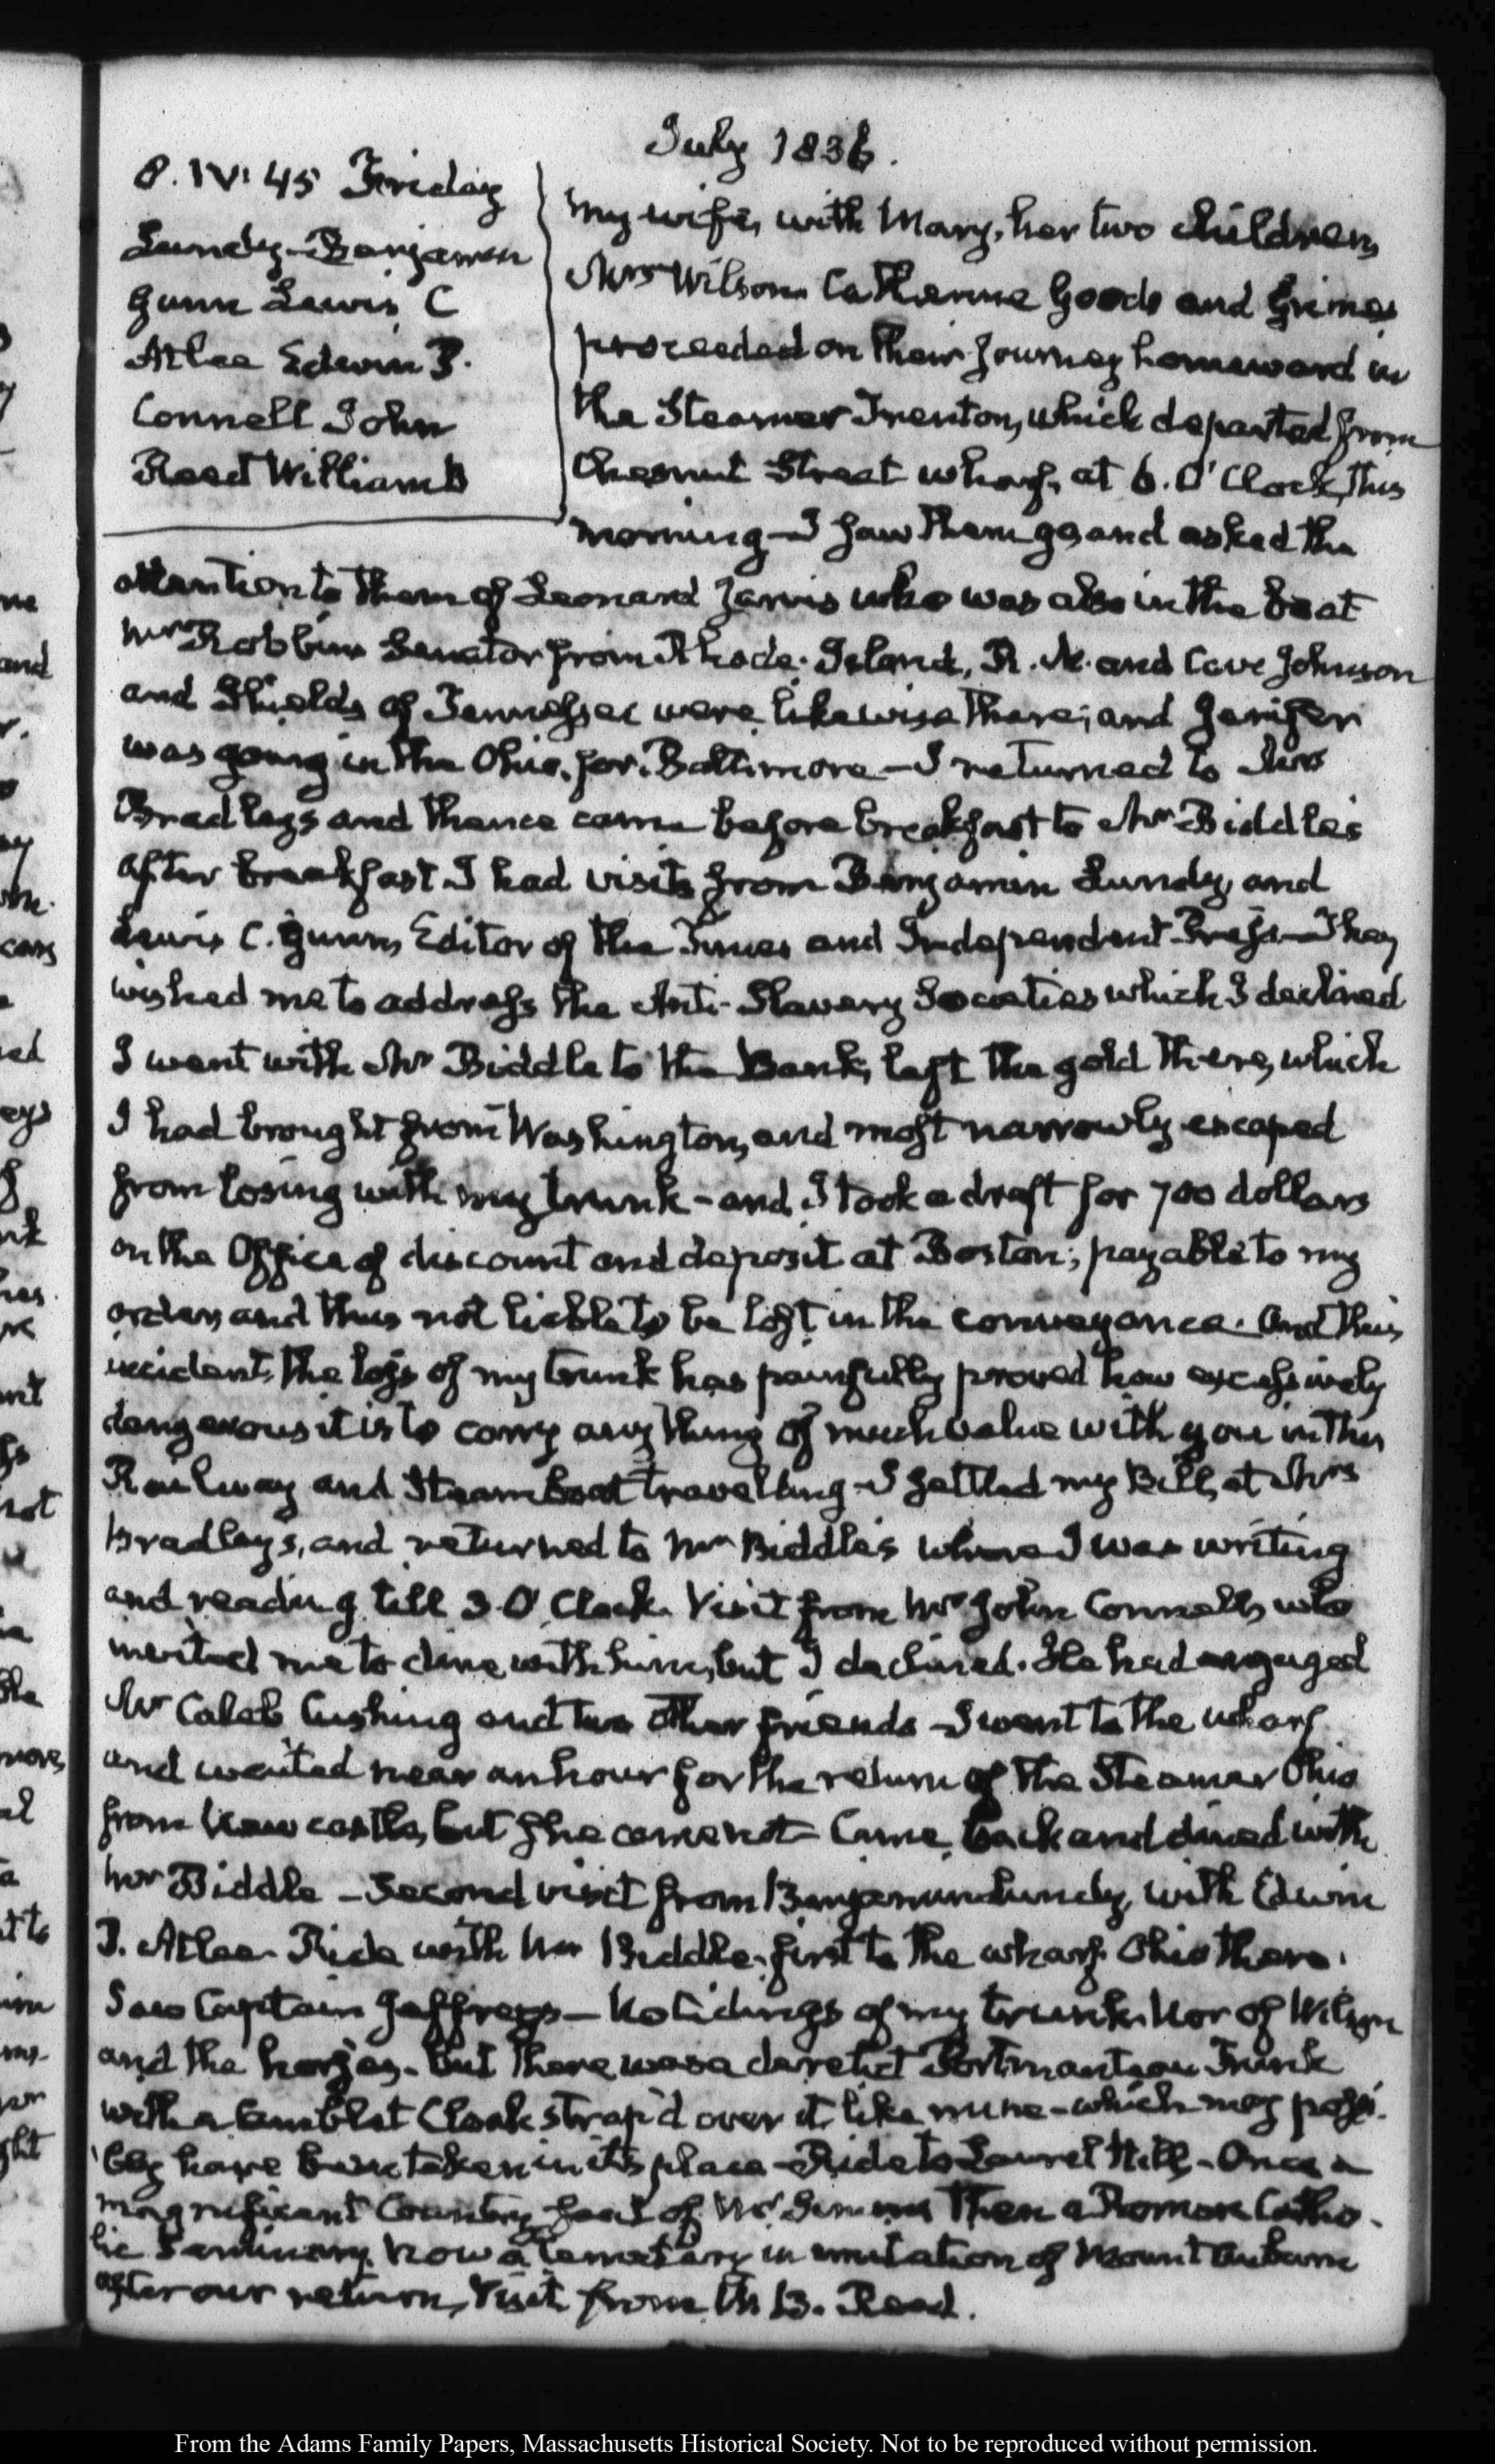 July 1836.
8. IV: 45 Friday
Lundy Benjamin
Gunn Lewis C
Atlee Edwin P.
Connell John
Reed William B
My wife, with Mary, her two children,
Mrs Wilson Catherine Goods and Grimes
proceeded on their journey homeward in
the Steamer Trenton, which departed from
Chesnut Street wharf, at 6. O'Clock, this
morning—I saw them go, and asked the
attention to them of Leonard Jarvis who was also in the boat
Mr Robbins Senator from Rhode-Island, R. M. and Cave Johnson
and Shields of Tennessee were likewise there; and Jenifer
was going in the Ohio, for Baltimore—I returned to Mrs
Bradleys and thence came before breakfast to Mr Biddle's
after breakfast I had visits from Benjamin Lundy, and
Lewis C. Gunn, Editor of the Times and Independent Press—They
wished me to address the Anti-Slavery Societies which I declined
I went with Mr Biddle to the Bank, left the gold there, which
I had brought from Washington, and most narrowly escaped
from losing with my trunk—and I took a draft for 700 dollars
on the Office of discount and deposit at Boston; payable to my
order, and thus not liable to be lost in the conveyance. And this
incident, the loss of my trunk has painfully proved how excessively
dangerous it is to carry any thing of much value with you in this
Railway and Steamboat travelling—I settled my Bill, at Mrs
Bradleys, and returned to Mr Biddle's where I was writing
and reading till 3 O'Clock. Visit from Mr John Connell, who
invited me to dine with him, but I declined. He had engaged
Mr Caleb Cushing and two other friends—I went to the wharf
and waited near an hour for the return of the Steamer Ohio
from New castle, but she came not—Came back and dined with
Mr Biddle—Second visit from Benjamin Lundy, with Edwin
P. Atlee. Ride with Mr Biddle, first to the wharf. Ohio there.
Saw Captain Jeffreys—No tidings of my trunk. Nor of Wilson
and the horses. But there was a derelict Portmanteau Trunk
with a Camblet Cloak strap'd over it, like mine—which may possi-
bly have been taken in its place—Ride to Laurel Hill—Once a
magnificent Country seat of Mr Simms Then a Roman Catho-
lic Seminary. Now a Cemetary in imitation of Mount Auburn
after our return, Visit from W B. Reed.
From the Adams Family Papers, Massachusetts Historical Society. Not to be reproduced without permission.